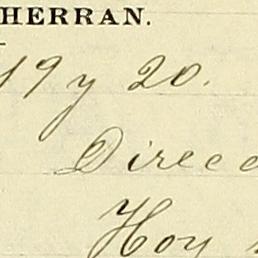 HERRAN.
19 y 20.
Direcc
Hoy